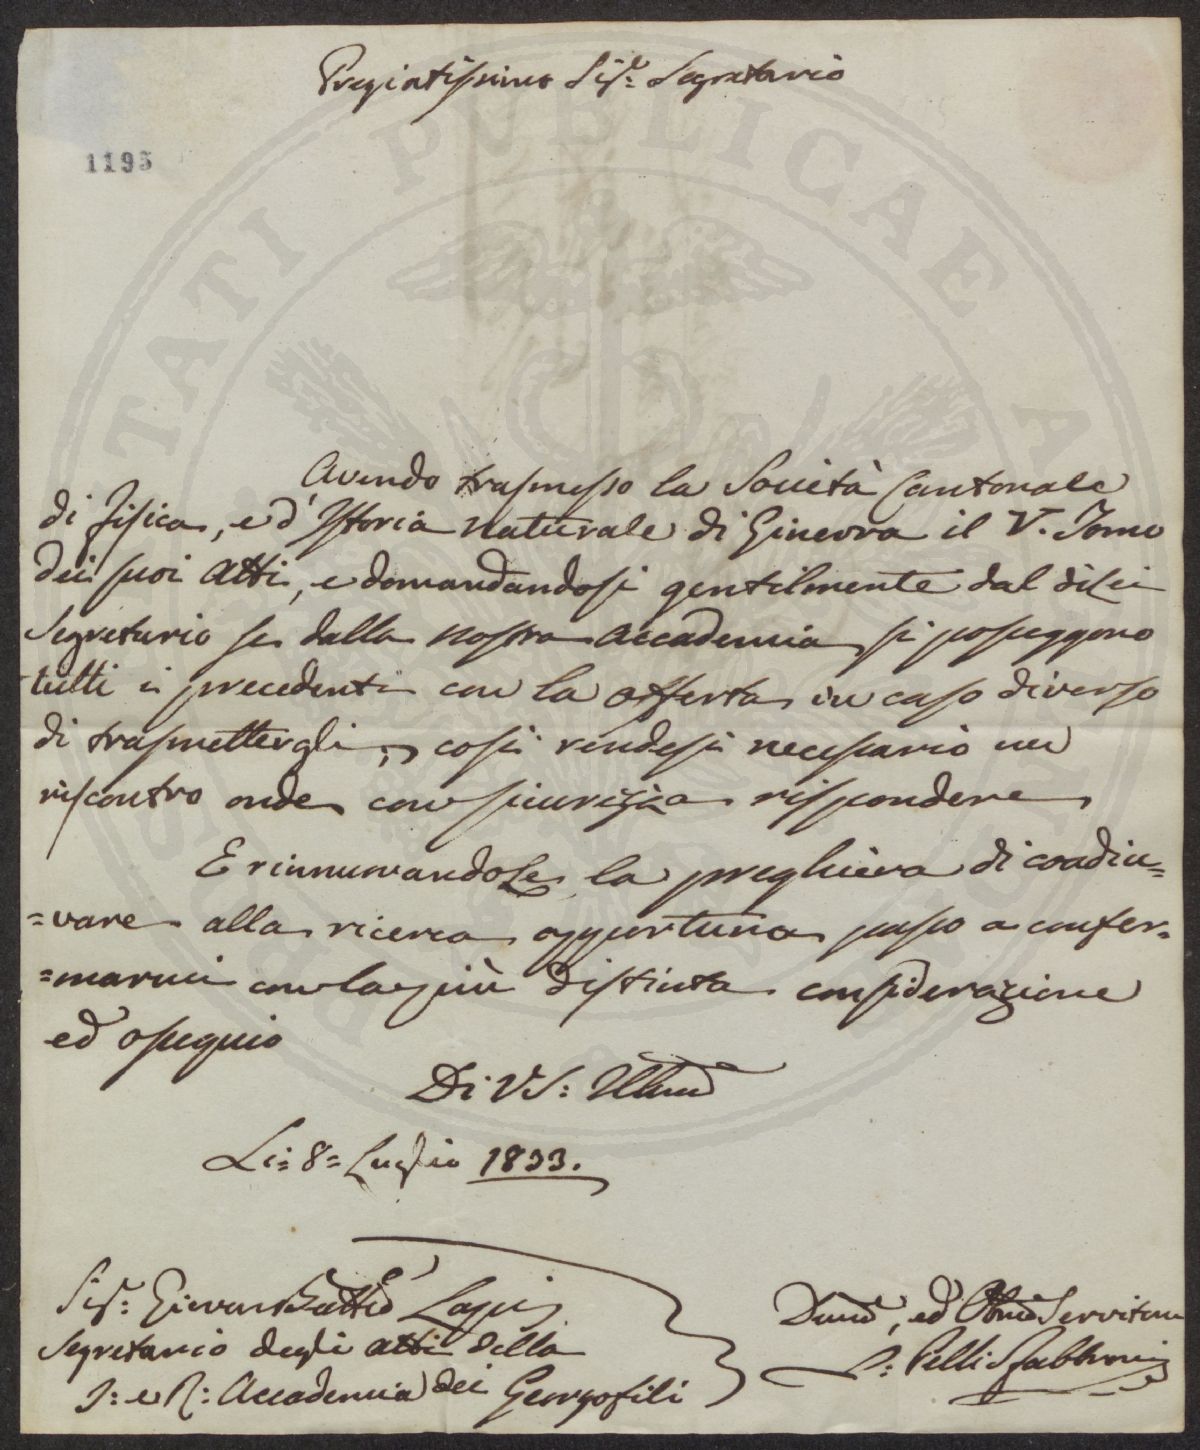 Pregiatissimo Sig.r Segretario
1195
Avendo trasmesso la Società Cantonale
di fisica, e d'Istoria naturale di Ginevra il V. Tomo
dei suoi Atti, e domandandosi gentilmente dal di Lei
Segretario se dalla nostra Accademia si posseggono
tutti i precedenti con la offerta in caso diverso
di trasmettergli; così rendesi necessario un
riscontro onde con sicurezza rispondere
E rinnuovandoLe la preghiera di coadiu=
=vare alla ricerca opportuna passo a confer=
=marmi con la più distinta considerazione
ed ossequio
Di VS: Illma
Li: 8= Luglio 1833.
Sig.r Giovan Batta Lapi
Segretario degli atti della
I: e R: Accademia dei Georgofili
Devmo, ed Obbmo Servitore
L: Pelli Fabbroni
PUBLICAE